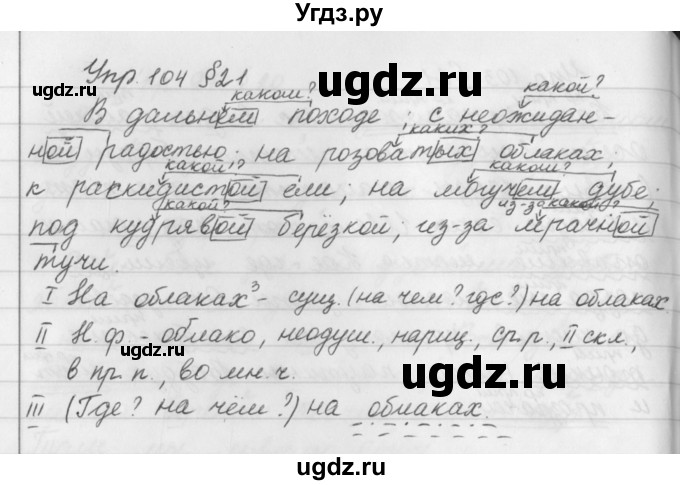 Угдз.ру
Упр. 104 §21
каком? какой?
В дальнем походе; с неожидан-
каких?
ной радостью; на розоватых облаках,
какой? каком?
к раскидистой ели; на могучем дубе;
какой? из-за какой?
под кудрявой берёзкой; из-за мрачной
тучи.
I На облаках³ - сущ. (на чем? где?) на облаках
II Н.ф - облако, неодуш., нариц., ср.р., II скл.,
в пр.п., во мн.ч.
III (Где? на чём?) на облаках.
ugdz.ru
ugdz.ru
ugdz.ru
ugdz.ru
ugdz.ru
ugdz.ru
ugdz.ru
ugdz.ru